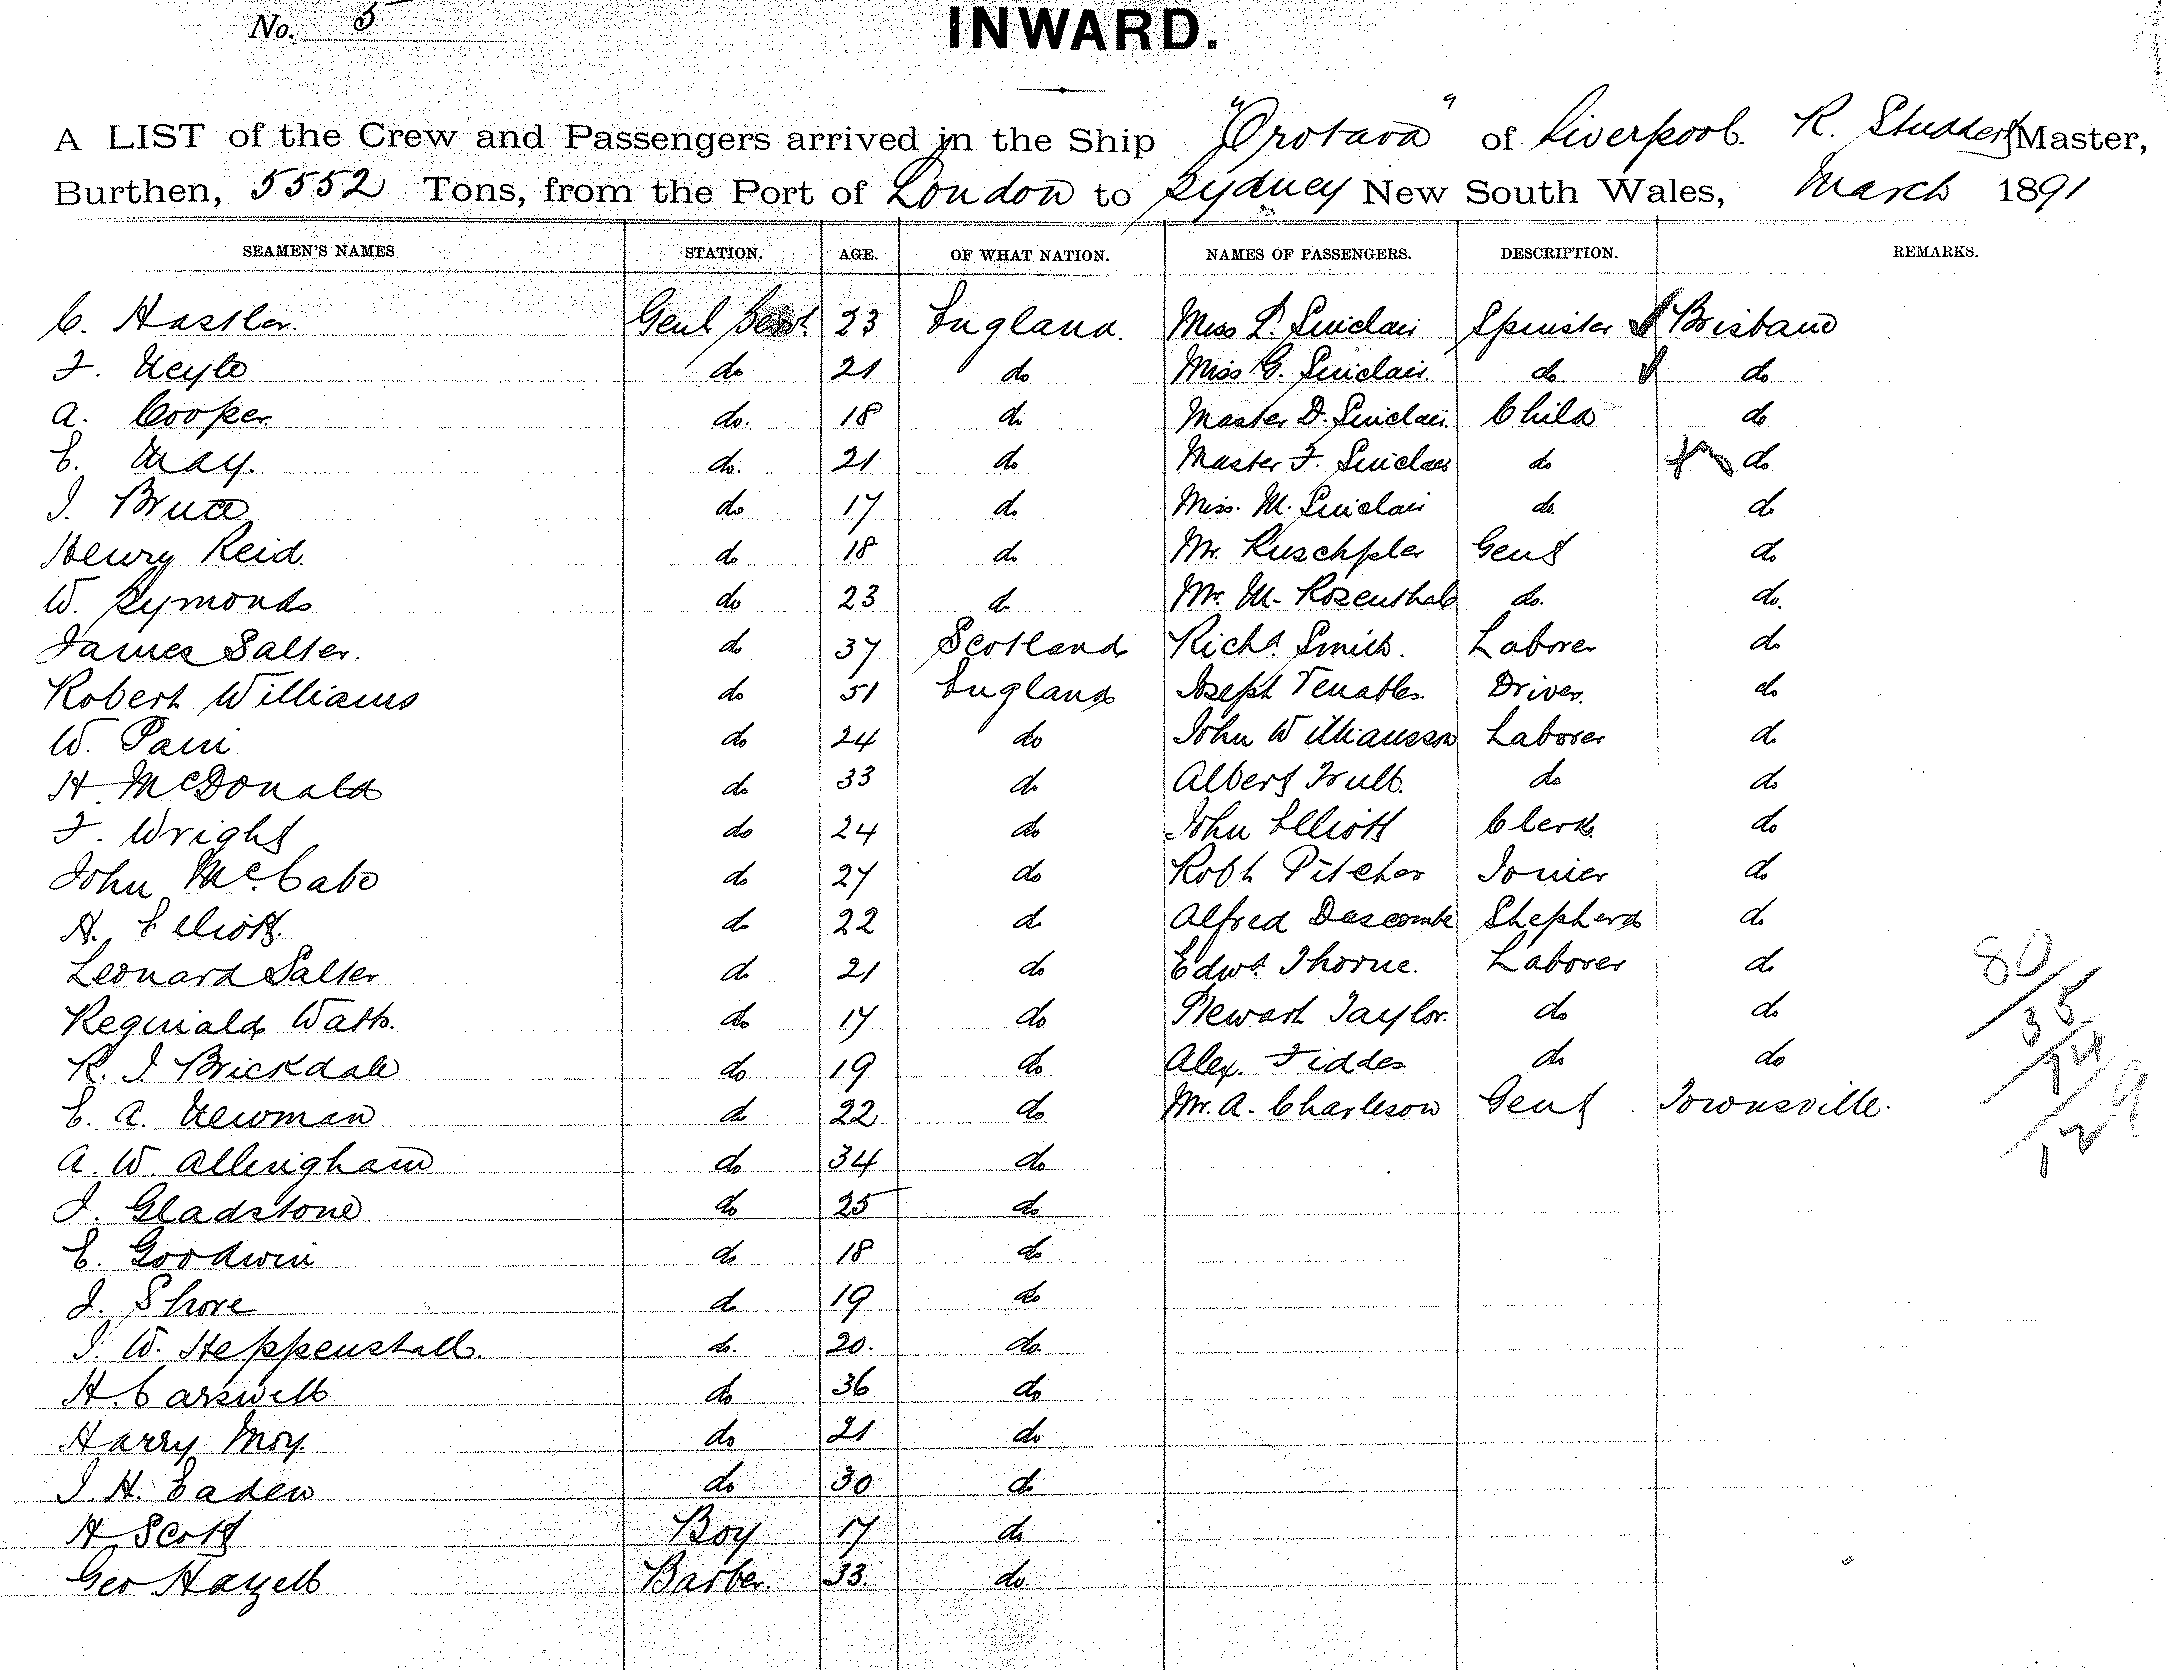 No. 5
INWARD.
A LIST of the Crew and Passengers arrived in the Ship "Orotava" of Liverpool. R. Studdert Master,
Burthen, 5552 Tons, from the Port of London to Sydney New South Wales, March 1891
SEAMEN'S NAMES STATION. AGE. OF WHAT NATION. NAMES OF PASSENGERS. DESCRIPTION. REMARKS.
C. Hastler. Genl 23 England. Miss L. Sinclair Spinster Brisbane
F. do 21 do Miss G. Sinclair. do do
A. Cooper do. 18 do Master D. Sinclair. Child do
E. May. do. 21 do Master F. Sinclair do do
J. Bruce do 17 do Miss. M. Sinclair do. do
Henry Reid. do 18 do Mr. Ruschpler Gent do
W. Symonds do 23 do Mr. M. Rosenthal do. do.
James Salter. do 37 Scotland Richd. Smith. Laborer do
Robert Williams do 51 England Joseph Venables. Driver. do
W. Pain do 24 do John Williamson Laborer do
H. McDonald do 33 do Albert do do
F. Wright do 24 do John Elliott Clerk do
John McCabe do 27 do Robt Pitcher Joiner do
A. Elliott. do 22 do Alfred Dascombe Shepherd do
Leonard Salter do 21 do Edwd. Thorne. Laborer do
Reginald Watts. do 17 do Stewart Taylor. do do
R. J. Brickdale do 19 do Alex. Fiddes do do
E. A. Newman do 22 do Mr. A. Charleson Gent Townsville.
A. W. Allingham do 34 do
J. Gladstone do 25 do
E. Goodwin do 18 do
J. Shore do 19 do
J. W. Heppenstall. do. 20. do.
H. Carswell do 36 do
Harry Moy. do 21 do
J. H. Eaden do 30 do
H Scott Boy 17 do
Geo Hazell Barber. 33. do.
80/35/24/129